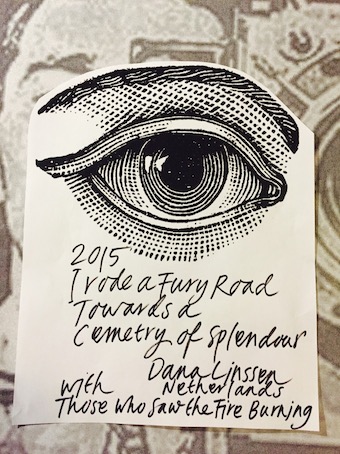 2015
I rode a Fury Road
Towards a
Cemetry of Splendour
Dana Linssen
with Netherlands
Those Who Saw the Fire Burning